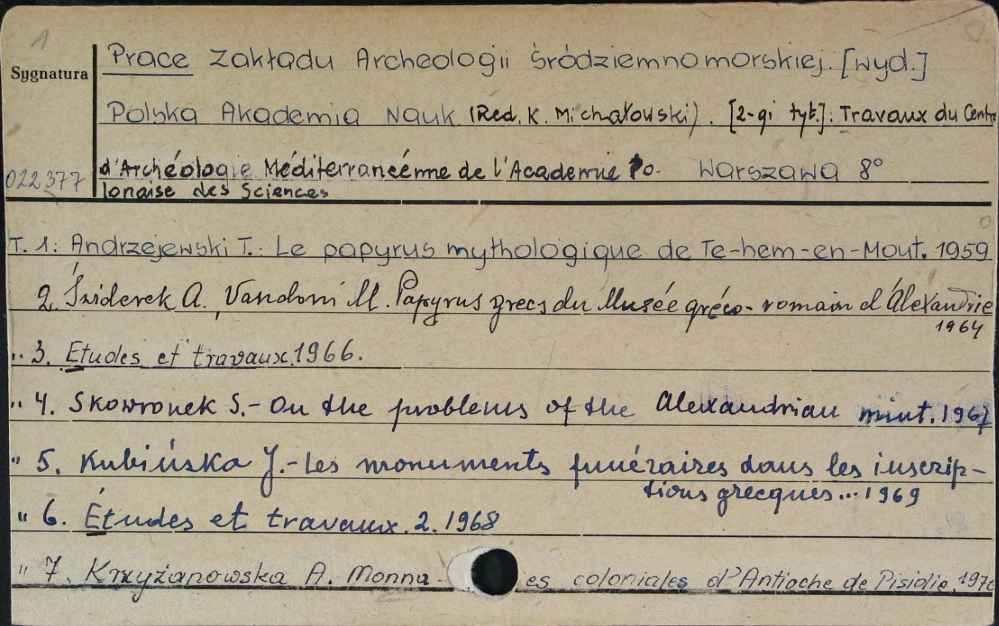 1
Sygnatura
Prace Zakładu Archeologii Śródziemnomorskiej. [wyd.]
Polska Akademia Nauk (Red. K. Michałowski). [2-gi tyt.]: Travaux du Centre
022377
d'Archéologie Méditerranéenne de l'Academie Po-
Warszawa 8°
lonaise des Sciences
T. 1: Andrzejewski T.: Le papyrus mythologique de Te-hem-en-Mout. 1959
2. Świderek A., Vandoni M. Papyrus grecs du Musée gréco-romain d'Alexandrie
1964
" 3. Etudes et travaux. 1966.
" 4. Skowronek S.- On the problems of the Alexandrian mint. 1967
" 5. Kubińska J.- Les monuments funéraires dans les inscrip-
tions grecques... 1969
" 6. Études et travaux. 2. 1968
" 7. Krzyżanowska A. Monna es coloniales d'Antioche de Pisidie.